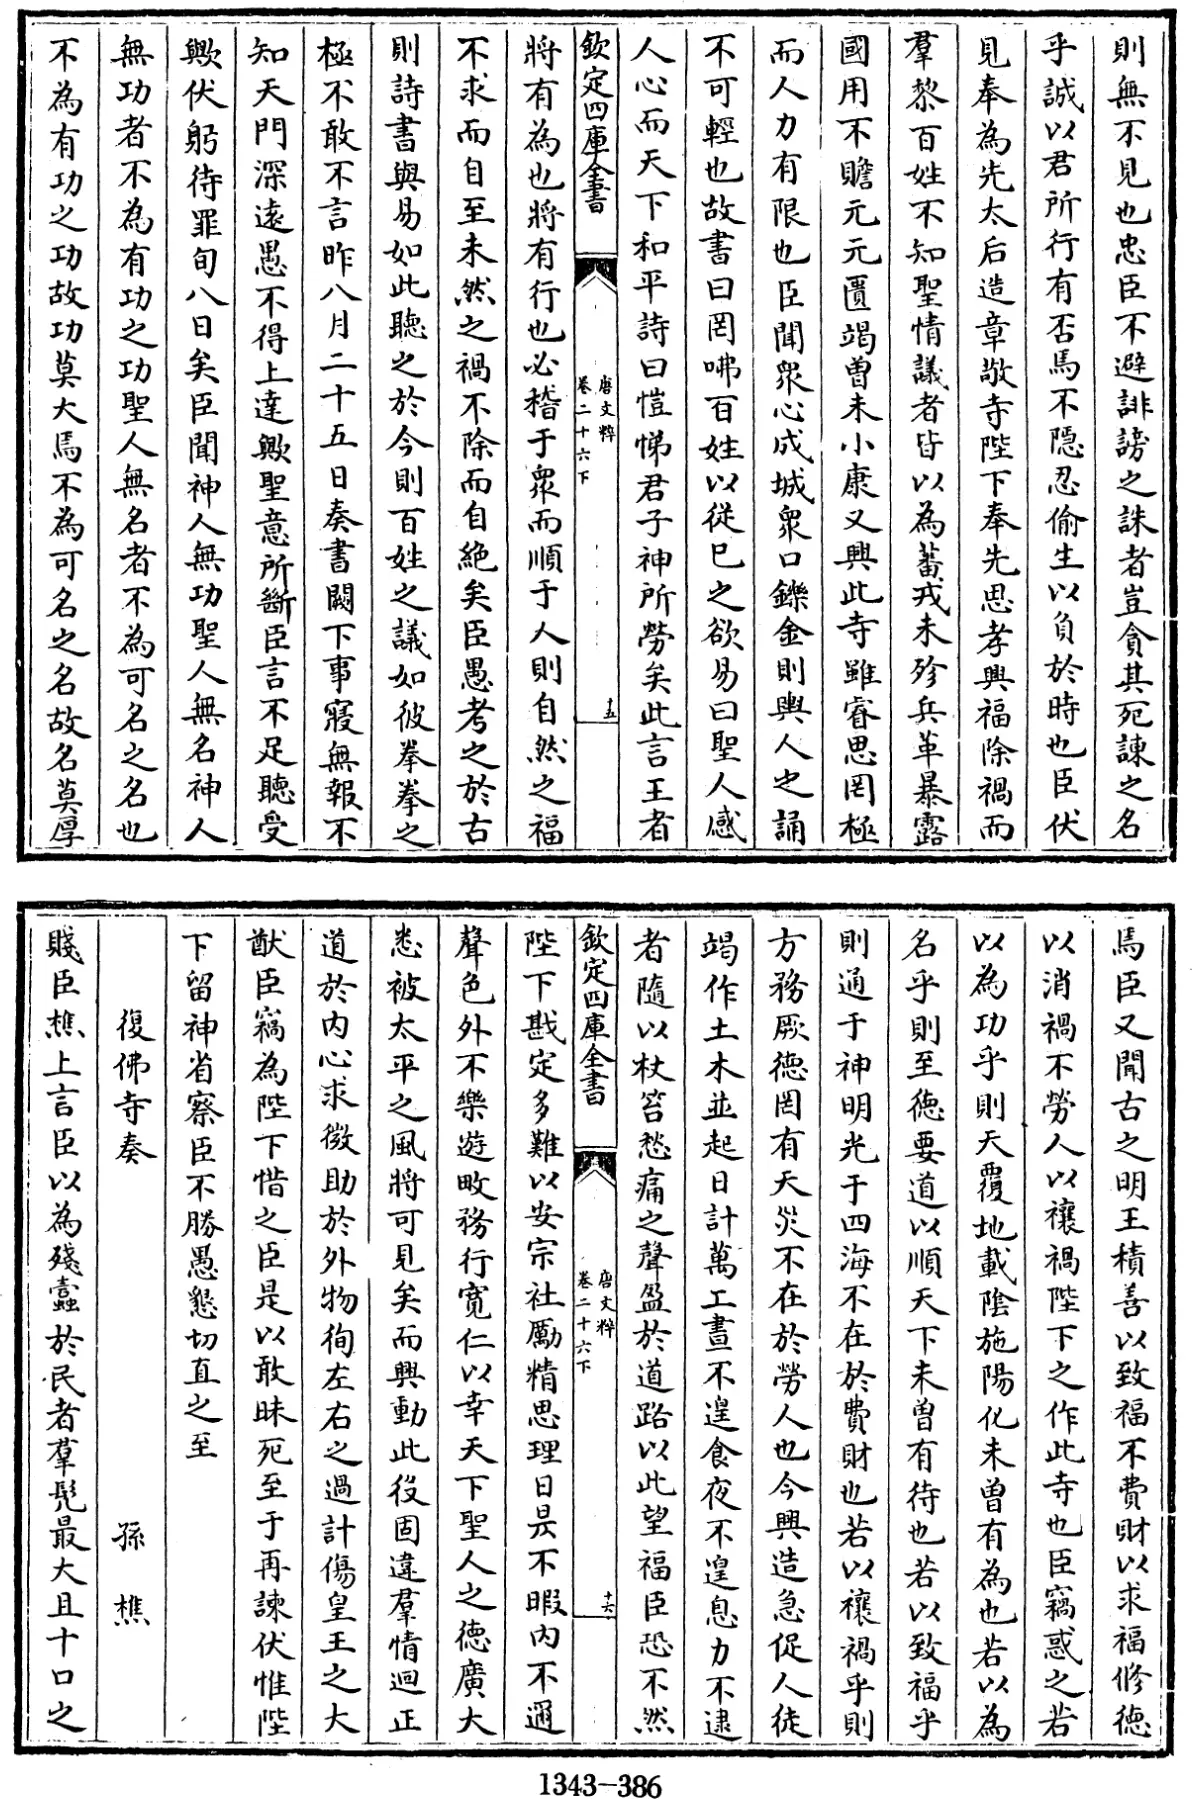 則無不見也忠臣不避誹謗之誅者豈貪其死諫之名
乎誠以君所行有否焉不隱忍偷生以負於時也臣伏
見奉為先太后造章敬寺陛下奉先思孝興福除禍而
羣黎百姓不知聖情議者皆以為蕃戎未殄兵革暴露
國用不贍元元匱竭曾未小康又興此寺雖睿思罔極
而人力有限也臣聞衆心成城衆口鑠金則輿人之誦
不可輕也故書曰罔咈百姓以從已之欲易曰聖人感
人心而天下和平詩曰愷悌君子神所勞矣此言王者
欽定四庫全書
唐文粹
卷二十六下
十五
將有為也將有行也必稽于衆而順于人則自然之福
不求而自至未然之禍不除而自絶矣臣愚考之於古
則詩書與易如此聽之於今則百姓之議如彼拳拳之
極不敢不言昨八月二十五日奏書闕下事寢無報不
知天門深遠愚不得上達歟聖意所斷臣言不足聽受
歟伏躬待罪旬八日矣臣聞神人無功聖人無名神人
無功者不為有功之功聖人無名者不為可名之名也
不為有功之功故功莫大焉不為可名之名故名莫厚
焉臣又聞古之明王積善以致福不費財以求福修德
以消禍不勞人以禳禍陛下之作此寺也臣竊惑之若
以為功乎則天覆地載陰施陽化未曾有為也若以為
名乎則至德要道以順天下未曾有待也若以致福乎
則通于神明光于四海不在於費財也若以禳禍乎則
方務厥德罔有天災不在於勞人也今興造急促人徒
竭作土木並起日計萬工晝不遑食夜不遑息力不逮
者隨以杖笞愁痛之聲盈於道路以此望福臣恐不然
欽定四庫全書
唐文粹
卷二十六下
十六
陛下戡定多難以安宗社勵精思理日昃不暇内不通
聲色外不樂遊畋務行寛仁以幸天下聖人之德廣大
悉被太平之風將可見矣而興動此役固違羣情迴正
道於内心求微助於外物徇左右之過計傷皇王之大
猷臣竊為陛下惜之臣是以敢昧死至于再諫伏惟陛
下留神省察臣不勝愚懇切直之至
復佛寺奏
孫樵
賤臣樵上言臣以為殘蠹於民者羣髡最大且十口之
1343-386